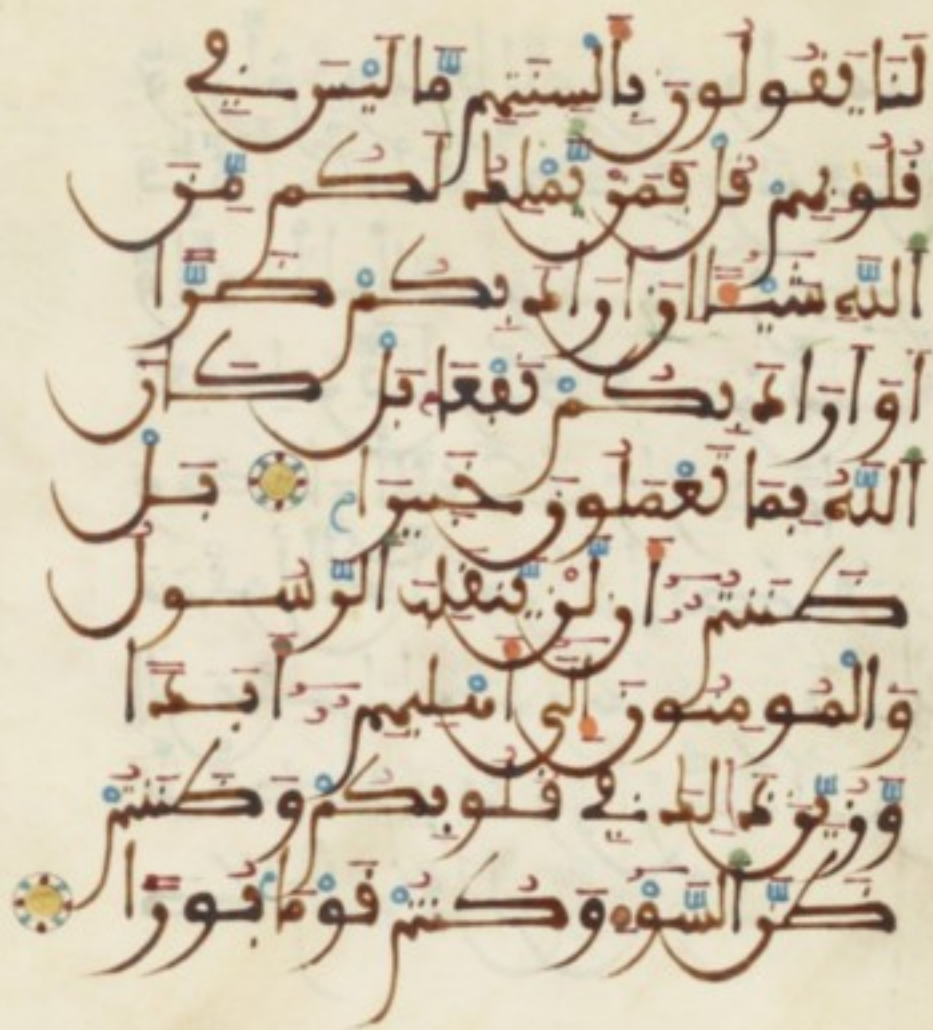 لَنَا يَقُولُونَ بِأَلْسِنَتِهِم مَّا لَيْسَ فِي
قُلُوبِهِمْ قُلْ فَمَنْ يَّمْلِكُ لَكُم مِّنَ
اَللَّهِ شَيْـًٔا اِنَ اَرَادَ بِكُمْ ضَرًّا
اَوَ اَرَادَ بِكُمْ نَفْعًا بَلْ كَانَ
اَللَّهُ بِمَا تَعْمَلُونَ خَبِيرًا بَلْ
ظَنَنتُمُ أَن لَّنْ يَّنقَلِبَ اَلرَّسُولُ
وَالْمُومِنُونَ إِلَى أَهْلِيهِمُ أَبَدًا
وَزُيِّنَ ذَلِكَ فِي قُلُوبِكُمْ وَظَنَنتُمْ
ظَنَّ اَلسَّوْءِ وَكُنتُمْ قَوْمًا بُورًا